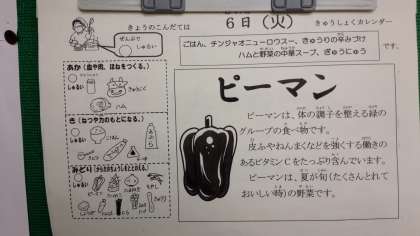 きょうのこんだては
6日(火)
きゅうしょくカレンダー
ぜんぶで
しゅるい
ごはん、チンジャオニューロウスー、きゅうりの辛みづけ
ハムと野菜の中華スープ、ぎゅうにゅう
です。
あか(血や肉、ほねをつくる。)
しゅるい
ぎゅうにく
ハム
き(ねつや力のもとになる。)
しゅるい
ごはん
あぶら
みどり(からだのちょうしをととのえる。)
しゅるい
ピーマン
ピーマンは、体の調子を整える緑の
グループの食べ物です。
皮ふやねんまくなどを強くする働きの
あるビタミンCをたっぷり含んでいます。
ピーマンは、夏が旬(たくさんとれて
おいしい時)の野菜です。